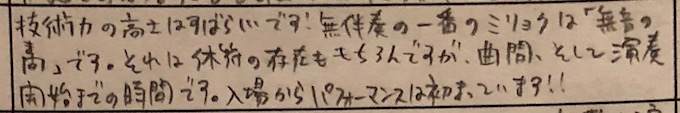 技術力の高さはすばらしいです！無伴奏の一番のミリョクは「無音の
間」です。それは休符の存在ももちろんですが、曲間、そして演奏
開始までの時間です。入場からパフォーマンスは初まっています!!